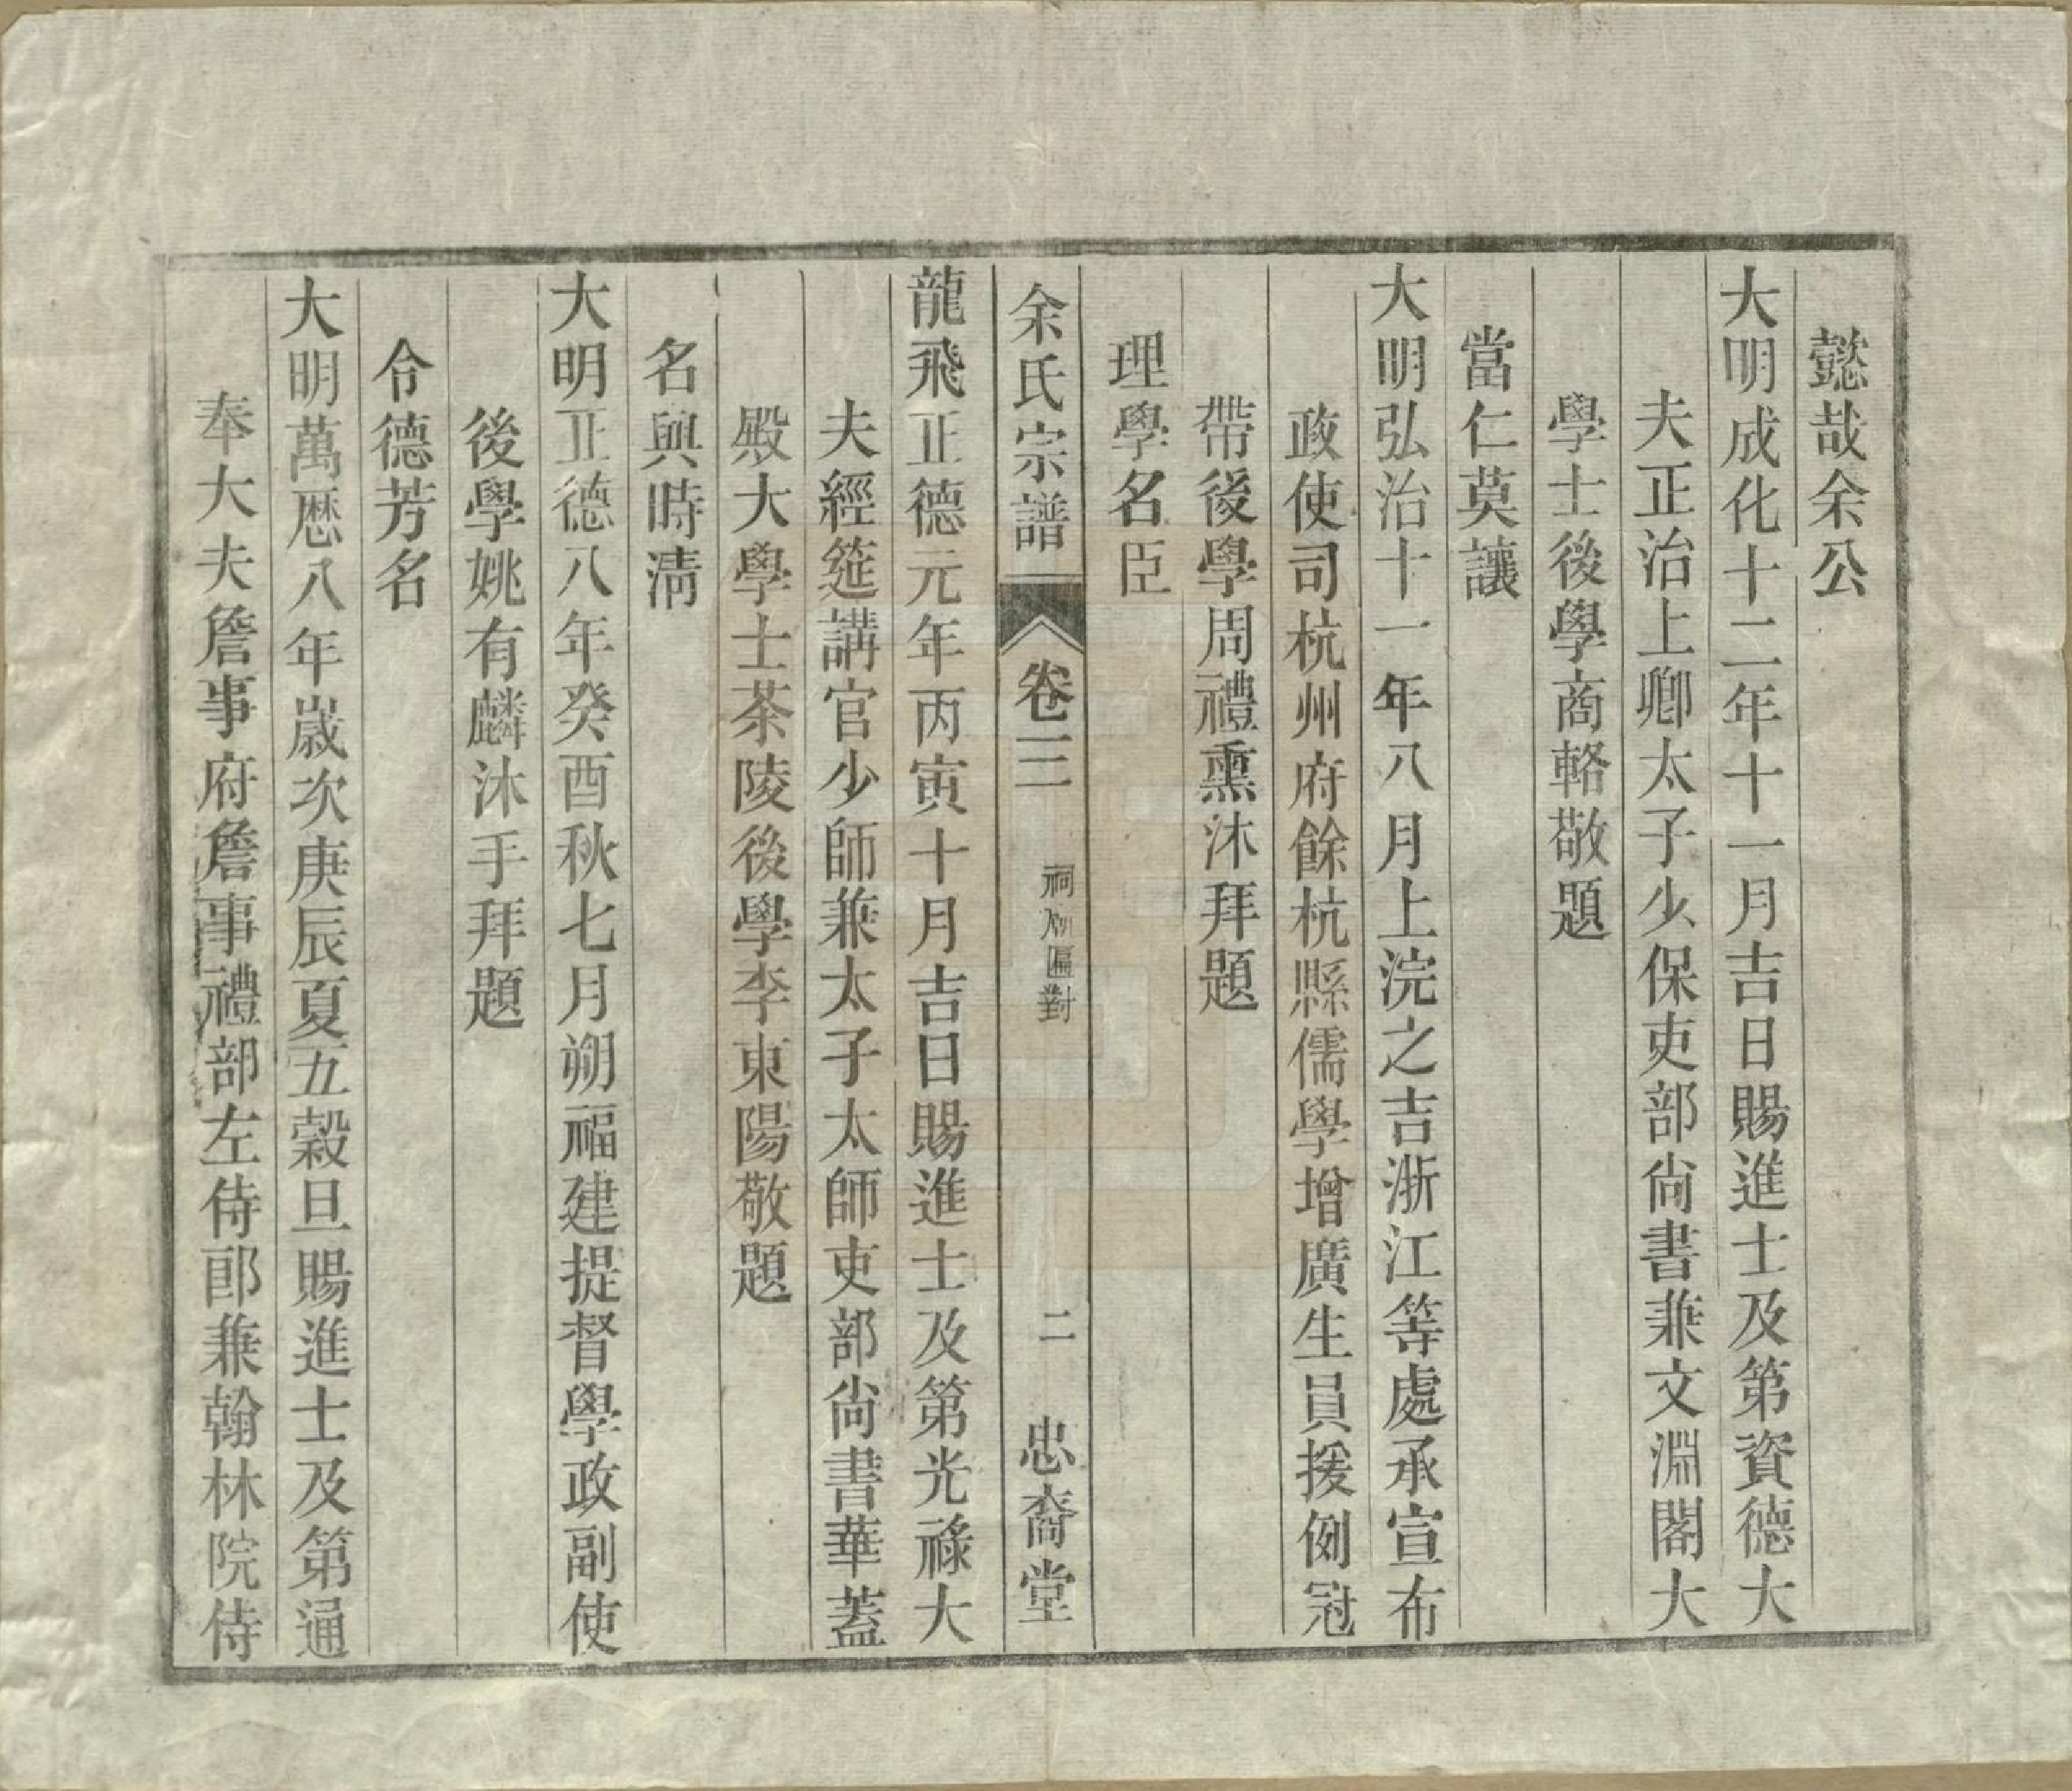 懿哉余公
大明成化十二年十一月吉日賜進士及第資德大
夫正治上卿太子少保吏部尙書兼文淵閣大
學士後學商輅敬題
當仁莫讓
大明弘治十一年八月上浣之吉浙江等處承宣布
政使司杭州府餘杭縣儒學增廣生員援例冠
帶後學周禮熏沐拜題
理學名臣
余氏宗譜
卷二
祠廟匾對
二
忠裔堂
龍飛正德元年丙寅十月吉日賜進士及第光祿大
夫經筵講官少師兼太子太師吏部尙書華蓋
殿大學士茶陵後學李東陽敬題
名與時淸
大明正德八年癸酉秋七月朔福建提督學政副使
後學姚有麟沐手拜題
令德芳名
大明萬曆八年歲次庚辰夏五穀旦賜進士及第通
奉大夫詹事府詹事禮部左侍郎兼翰林院侍